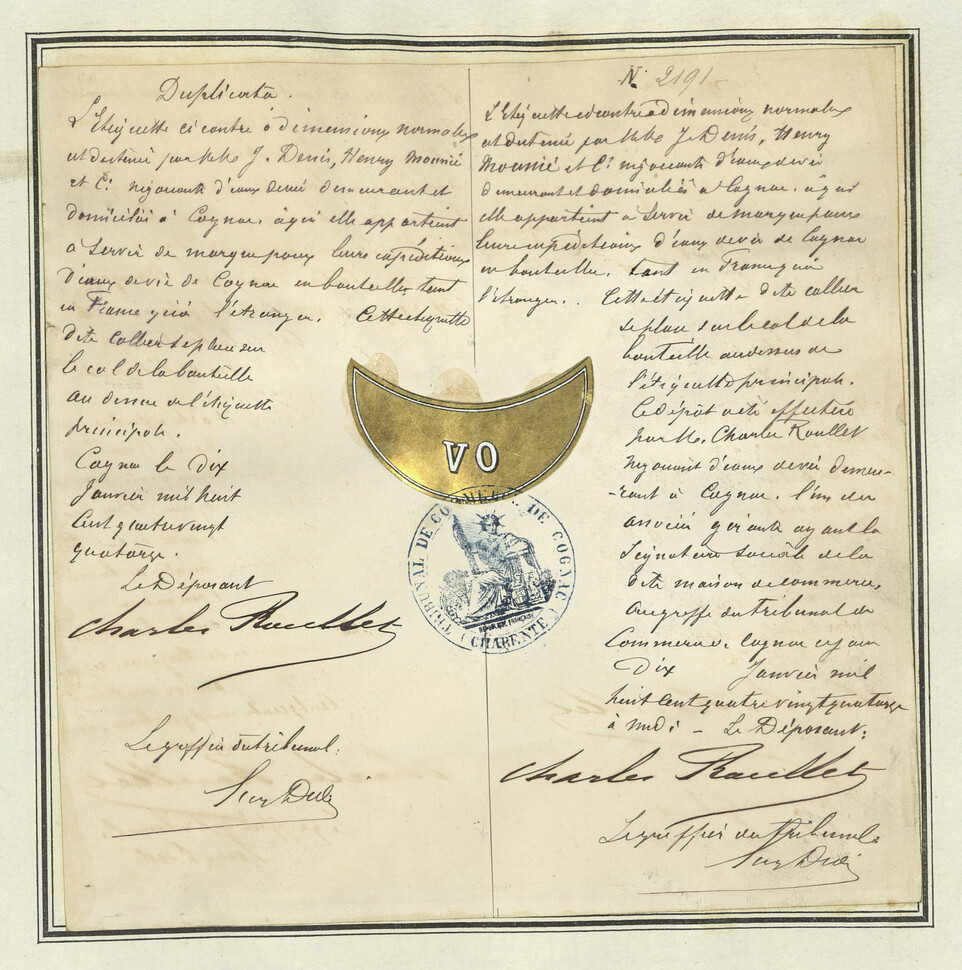 Duplicata.
L'Etiquette ci contre à dimensions normales
est destiné par MMs J. Denis, Henry Mounié
et Cie négociants d'eaux devie demeurant et
domiciliés à Cognac. à qui elle appartient
a Servir de marque pour leurs expéditions
d'eaux de vie de Cognac en bouteilles tant
en France qu'à l'étranger. Cette etiquette
dite collier se place sur
le col de la bouteille
au dessus de l'étiquette
principale.
Cognac le Dix
Janvier mil huit
Cent quatre vingt
quatorze.
Le Déposant
Charles Roullet
Le greffier du tribunal:
N° 2191
L'Etiquette ci contre à dimensions normales
est destiné par MMs J. Denis, Henry
Mounié et Cie négociants d'eaux devie
demeurant et domiciliés à Cognac. à qui
elle appartient a Servir de marque pour
leurs expéditions d'eaux de vie de Cognac
en bouteilles. tant en France qu'à
l'étranger. Cette étiquette dite collier
se place sur le col de la
bouteille au dessus de
l'étiquette principale.
Le dépôt a été effectué
par M. Charles Roullet
négociant d'eaux devie demeu-
-rant à Cognac. l'un des
associés gérants ayant la
Signature sociale de la
dite maison de commerce,
au greffe du tribunal de
Commerce de Cognac ce jour
Dix Janvier mil
huit Cent quatre vingt quatorze
à midi - Le Déposant:
Charles Roullet
Le greffier du tribunal:
VO
TRIBUNAL DE COMMERCE DE COGNAC
(CHARENTE)
REPUBLIQUE FRANÇAISE